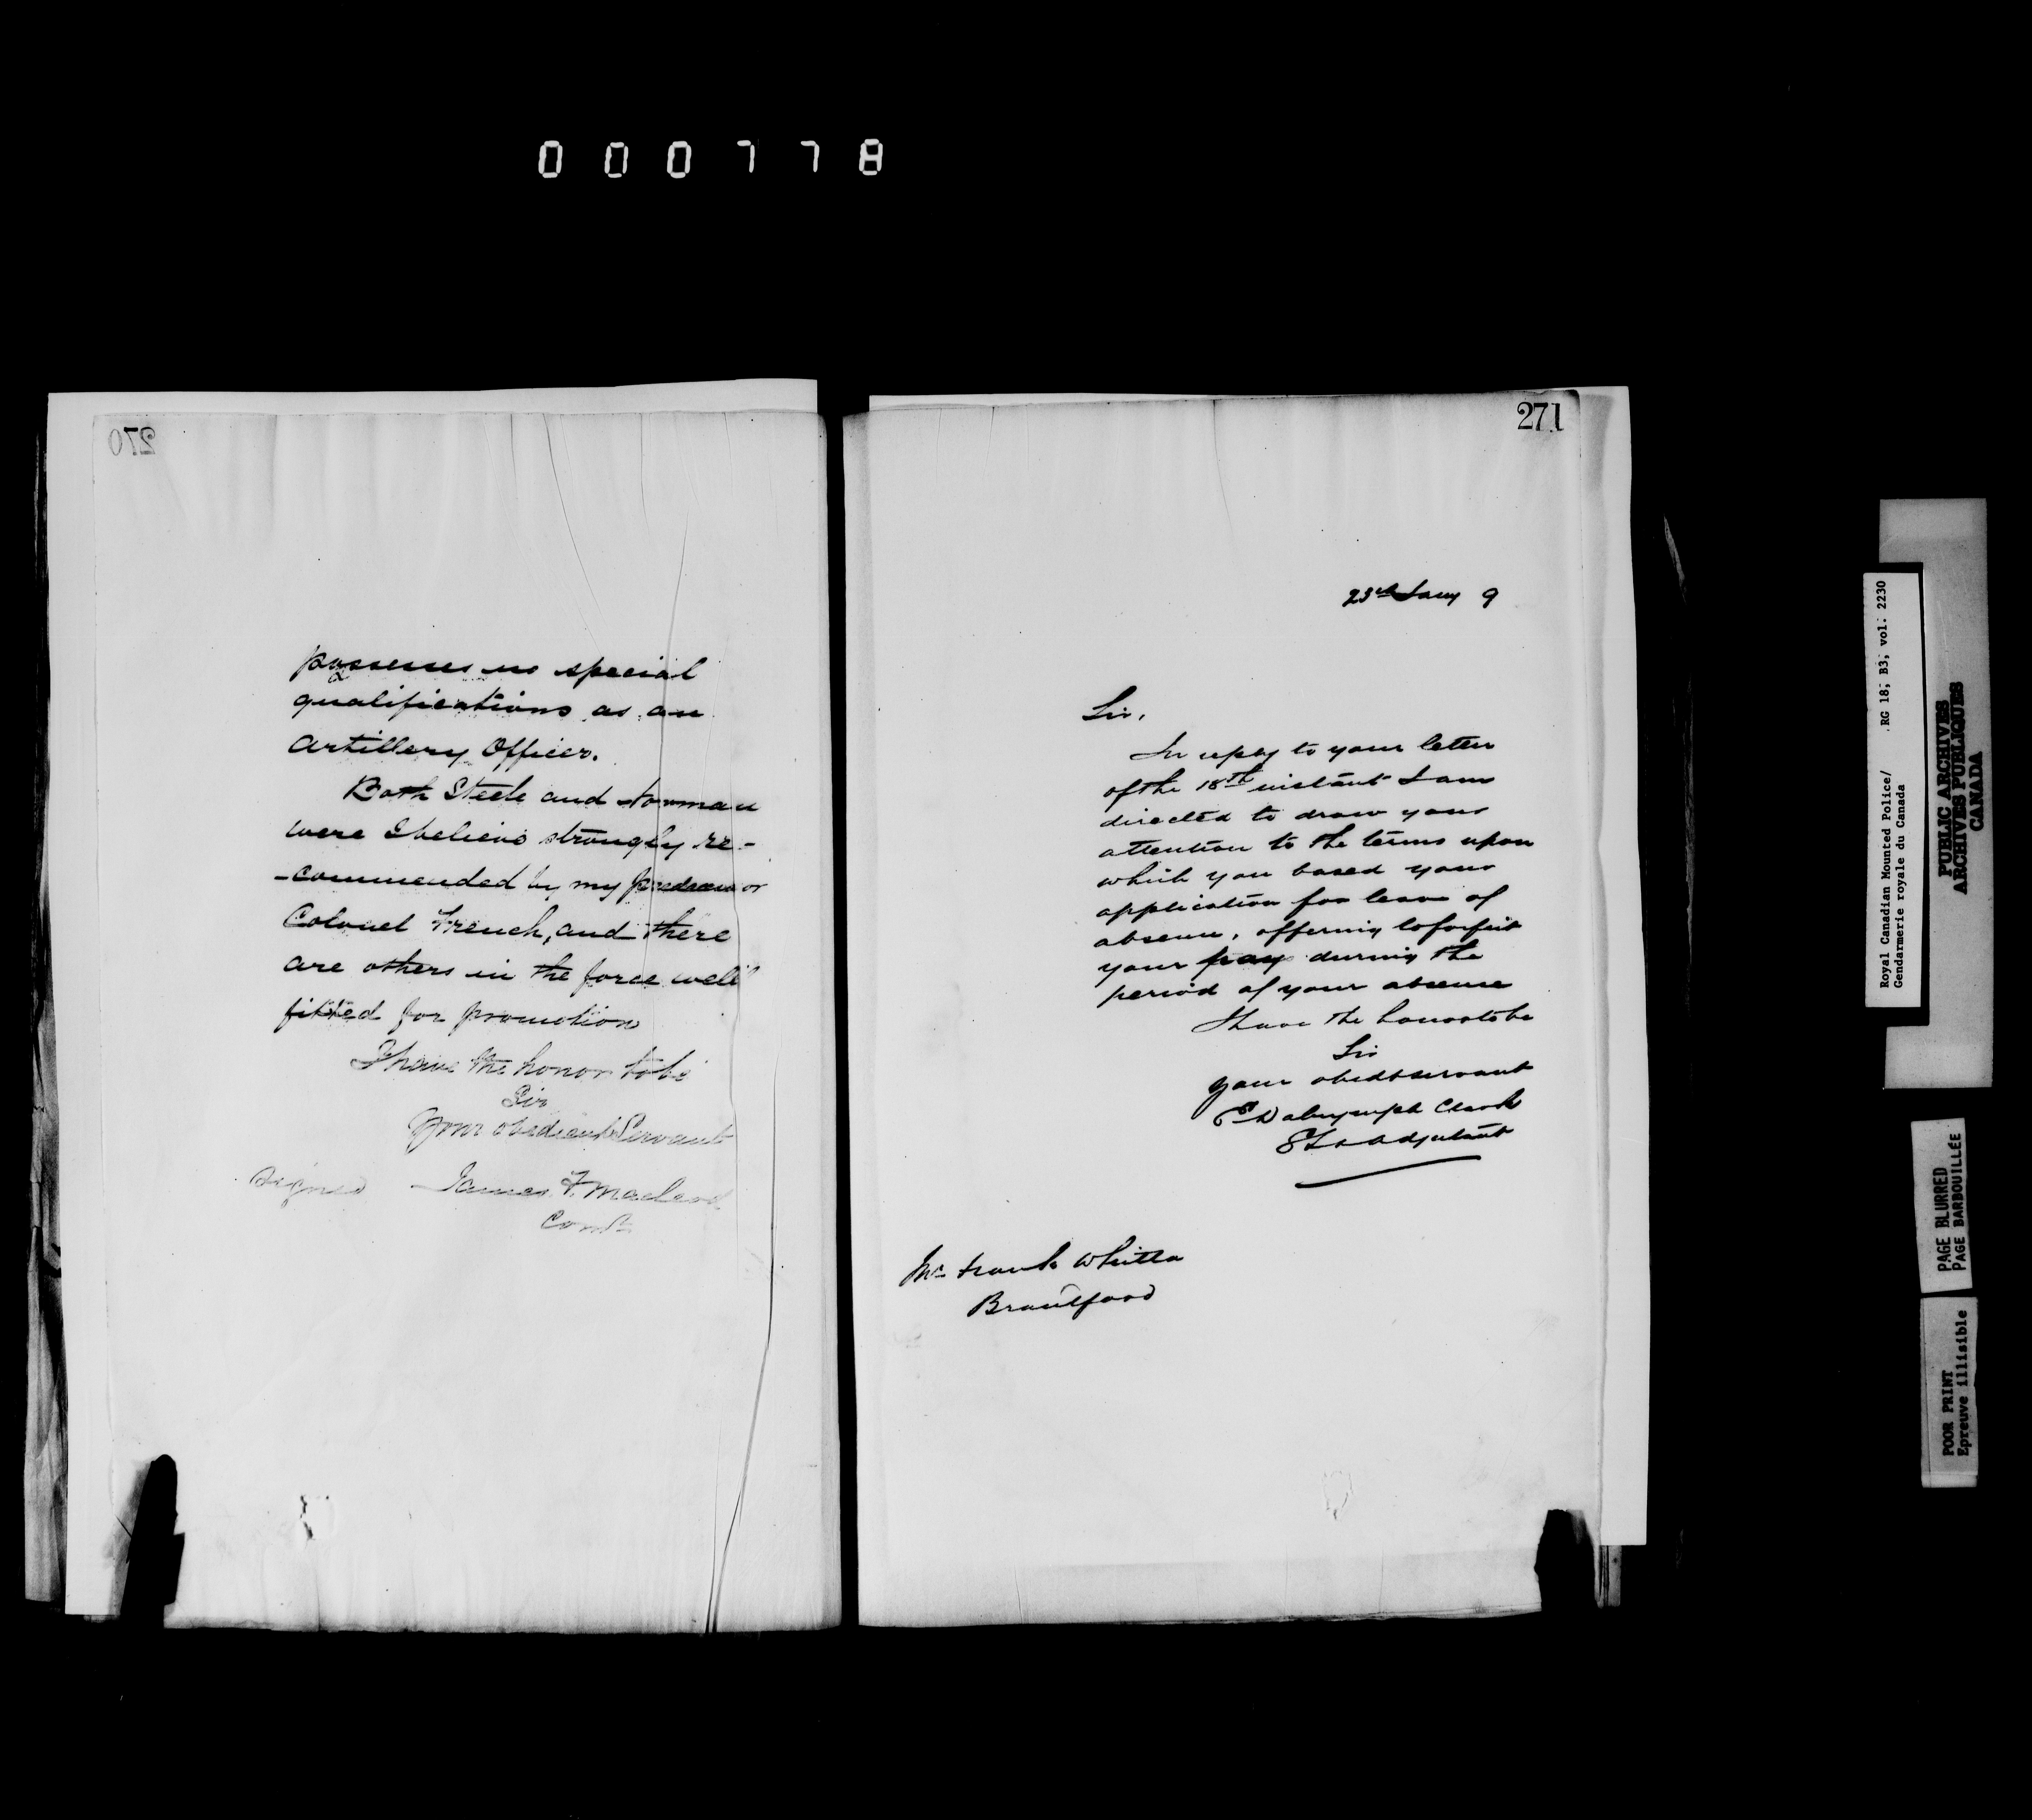 000778
270
possesses no special
qualifications as an
Artillery Officer.
Both Steele and Norman
were I believe strongly re-
-commended by my predecessor
Colonel French, and there
are others in the force well
fitted for promotion
I have the honor to be
Sir
Your obedient Servant
Signed James F. Macleod
Comr
271
23rd Jany 9
Sir,
In reply to your letter
of the 18th instant I am
directed to draw your
attention to the terms upon
which you based your
application for leave of
absence, offering to forfeit
your pay during the
period of your absence
I have the honor to be
Sir
your obedt servant
E Dalrymple Clark
Adjutant
Mr Frank Whitla
Brantford
Royal Canadian Mounted Police/ RG 18; B3; vol: 2230
Gendarmerie royale du Canada
PUBLIC ARCHIVES
ARCHIVES PUBLIQUES
CANADA
PAGE BLURRED
PAGE BARBOUILLÉE
POOR PRINT
Epreuve illisible